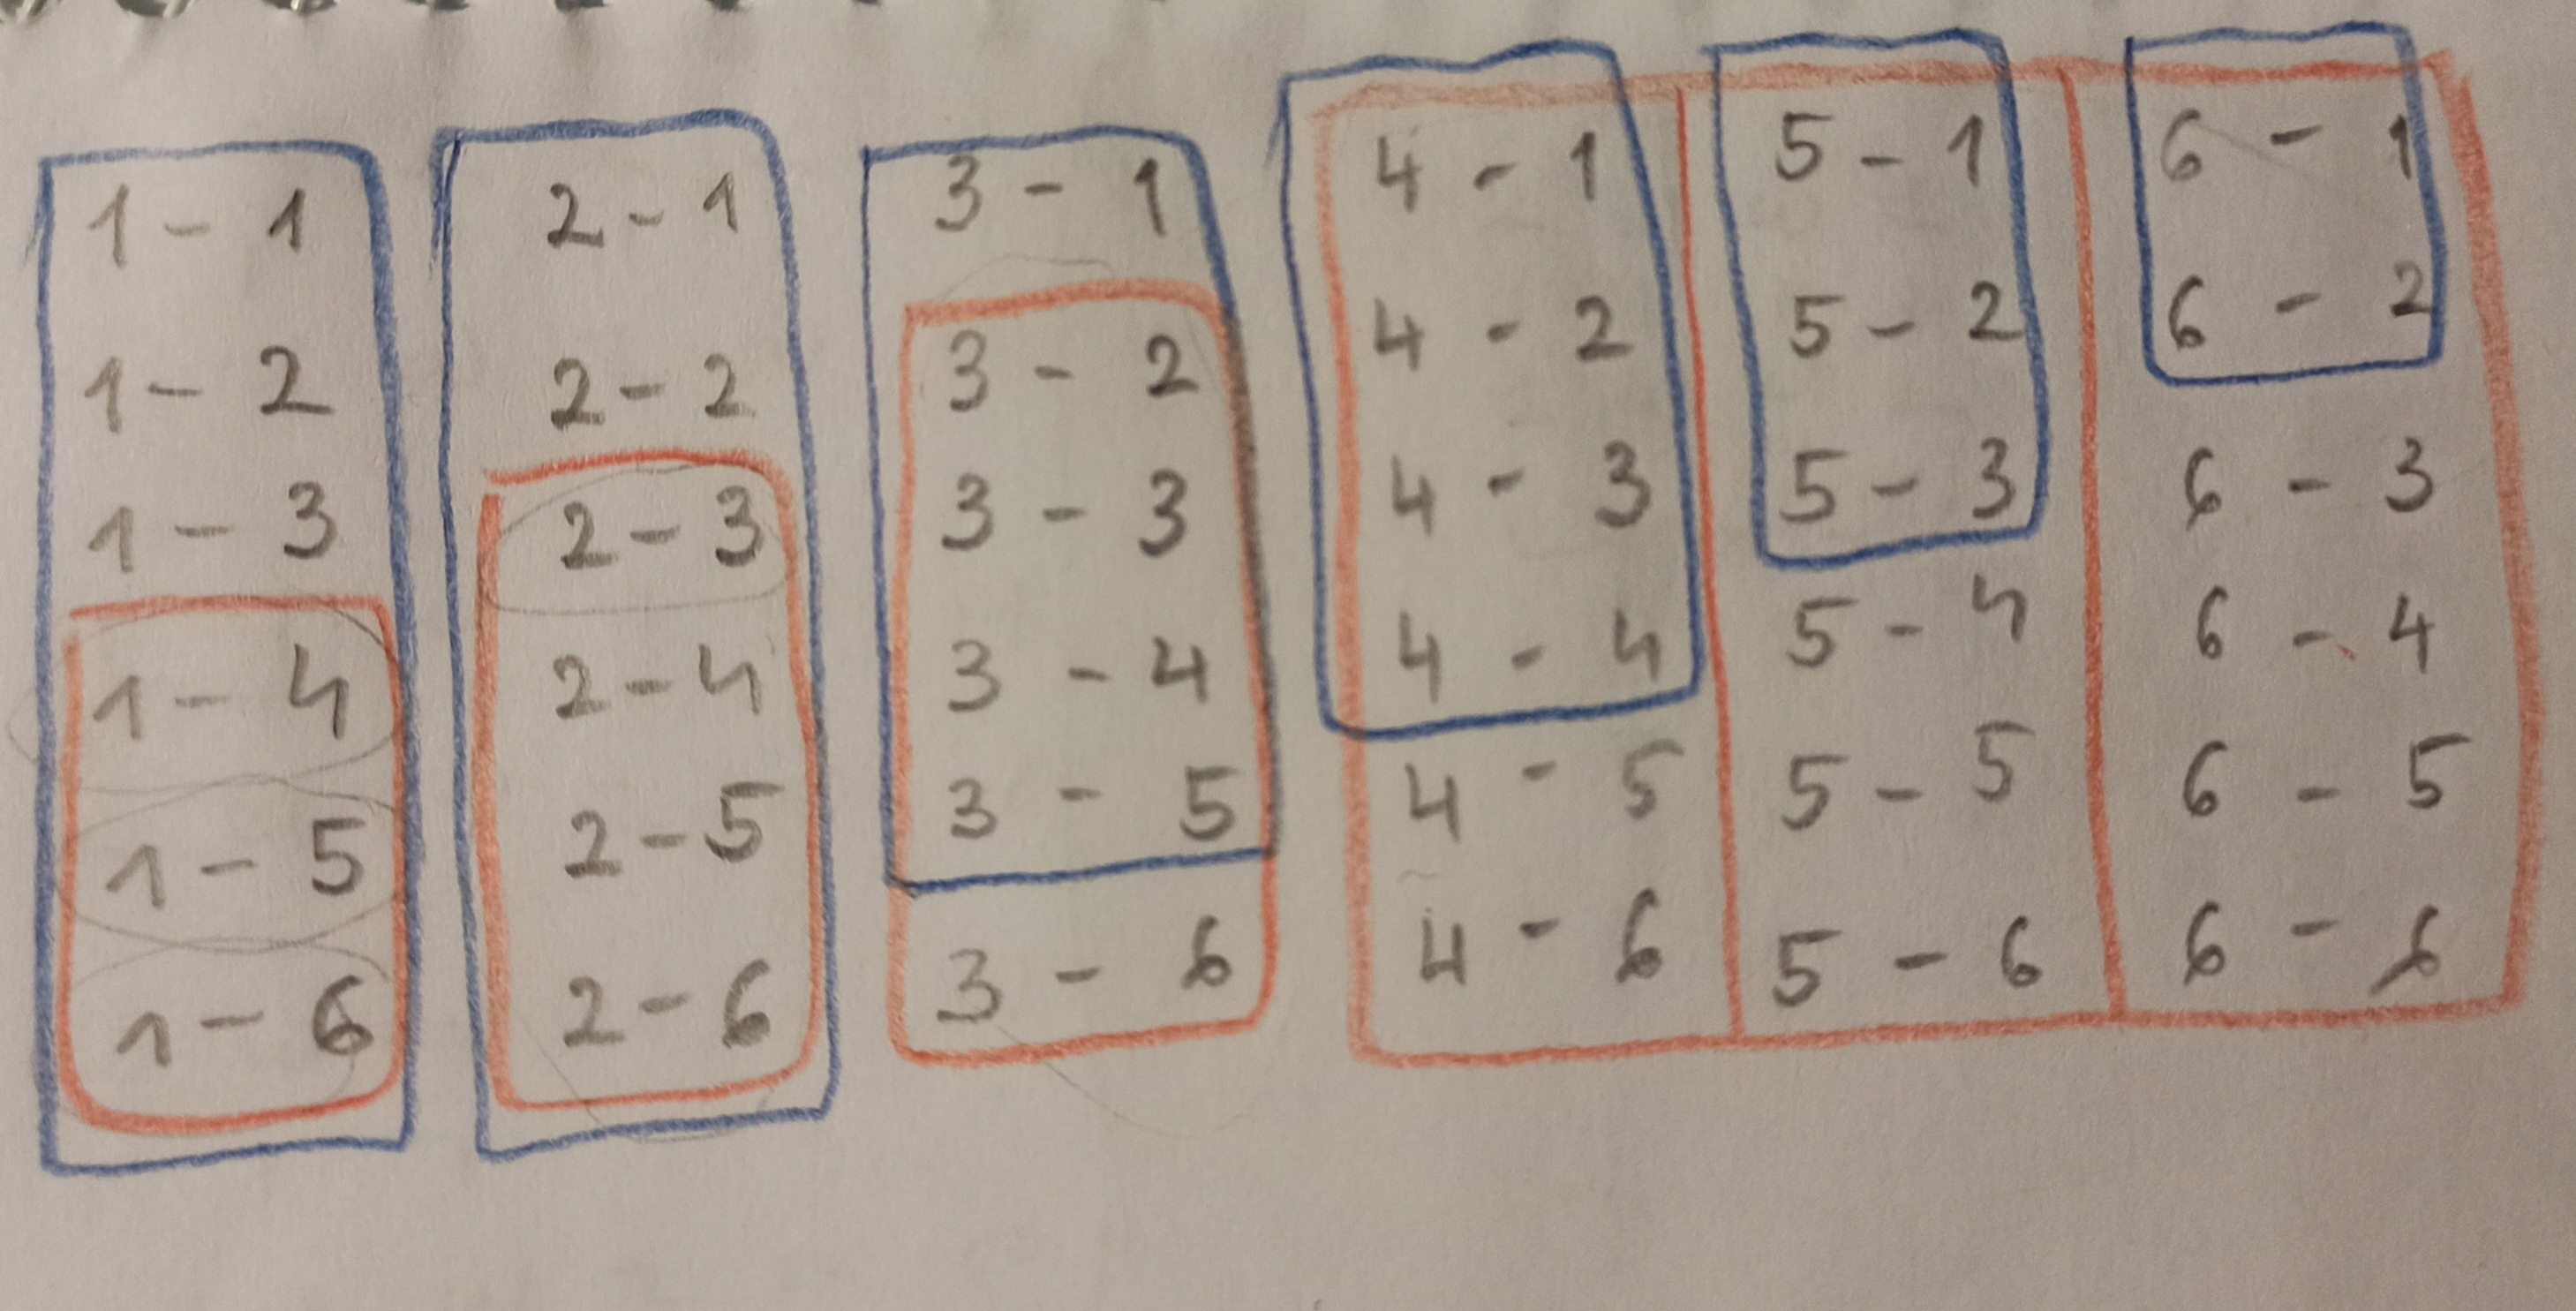 1 - 1
1 - 2
1 - 3
1 - 4
1 - 5
1 - 6
2 - 1
2 - 2
2 - 3
2 - 4
2 - 5
2 - 6
3 - 1
3 - 2
3 - 3
3 - 4
3 - 5
3 - 6
4 - 1
4 - 2
4 - 3
4 - 4
4 - 5
4 - 6
5 - 1
5 - 2
5 - 3
5 - 4
5 - 5
5 - 6
6 - 1
6 - 2
6 - 3
6 - 4
6 - 5
6 - 6